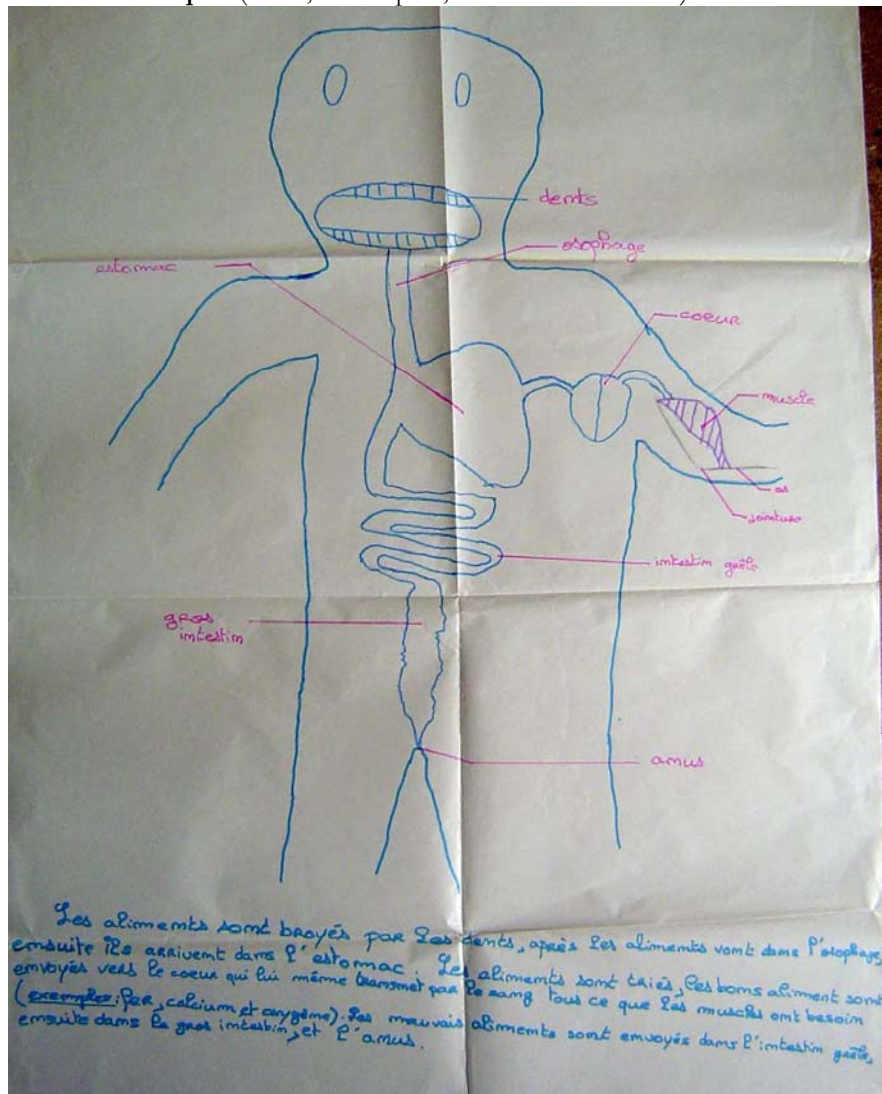 dents
osophage
estomac
coeur
muscle
os
jointure
intestin grêle
gros
intestin
anus
Les aliments sont broyés par les dents, après les aliments vont dans l'osophage,
ensuite ils arrivent dans l'estomac. Les aliments sont triés, les bons aliment sont
envoyés vers le coeur qui lui même transmet par le sang tous ce que les muscles ont besoin
(exemples: fer, calcium et oxygène). Les mauvais aliments sont envoyés dans l'intestin grêle,
ensuite dans le gros intestin, et l'anus.